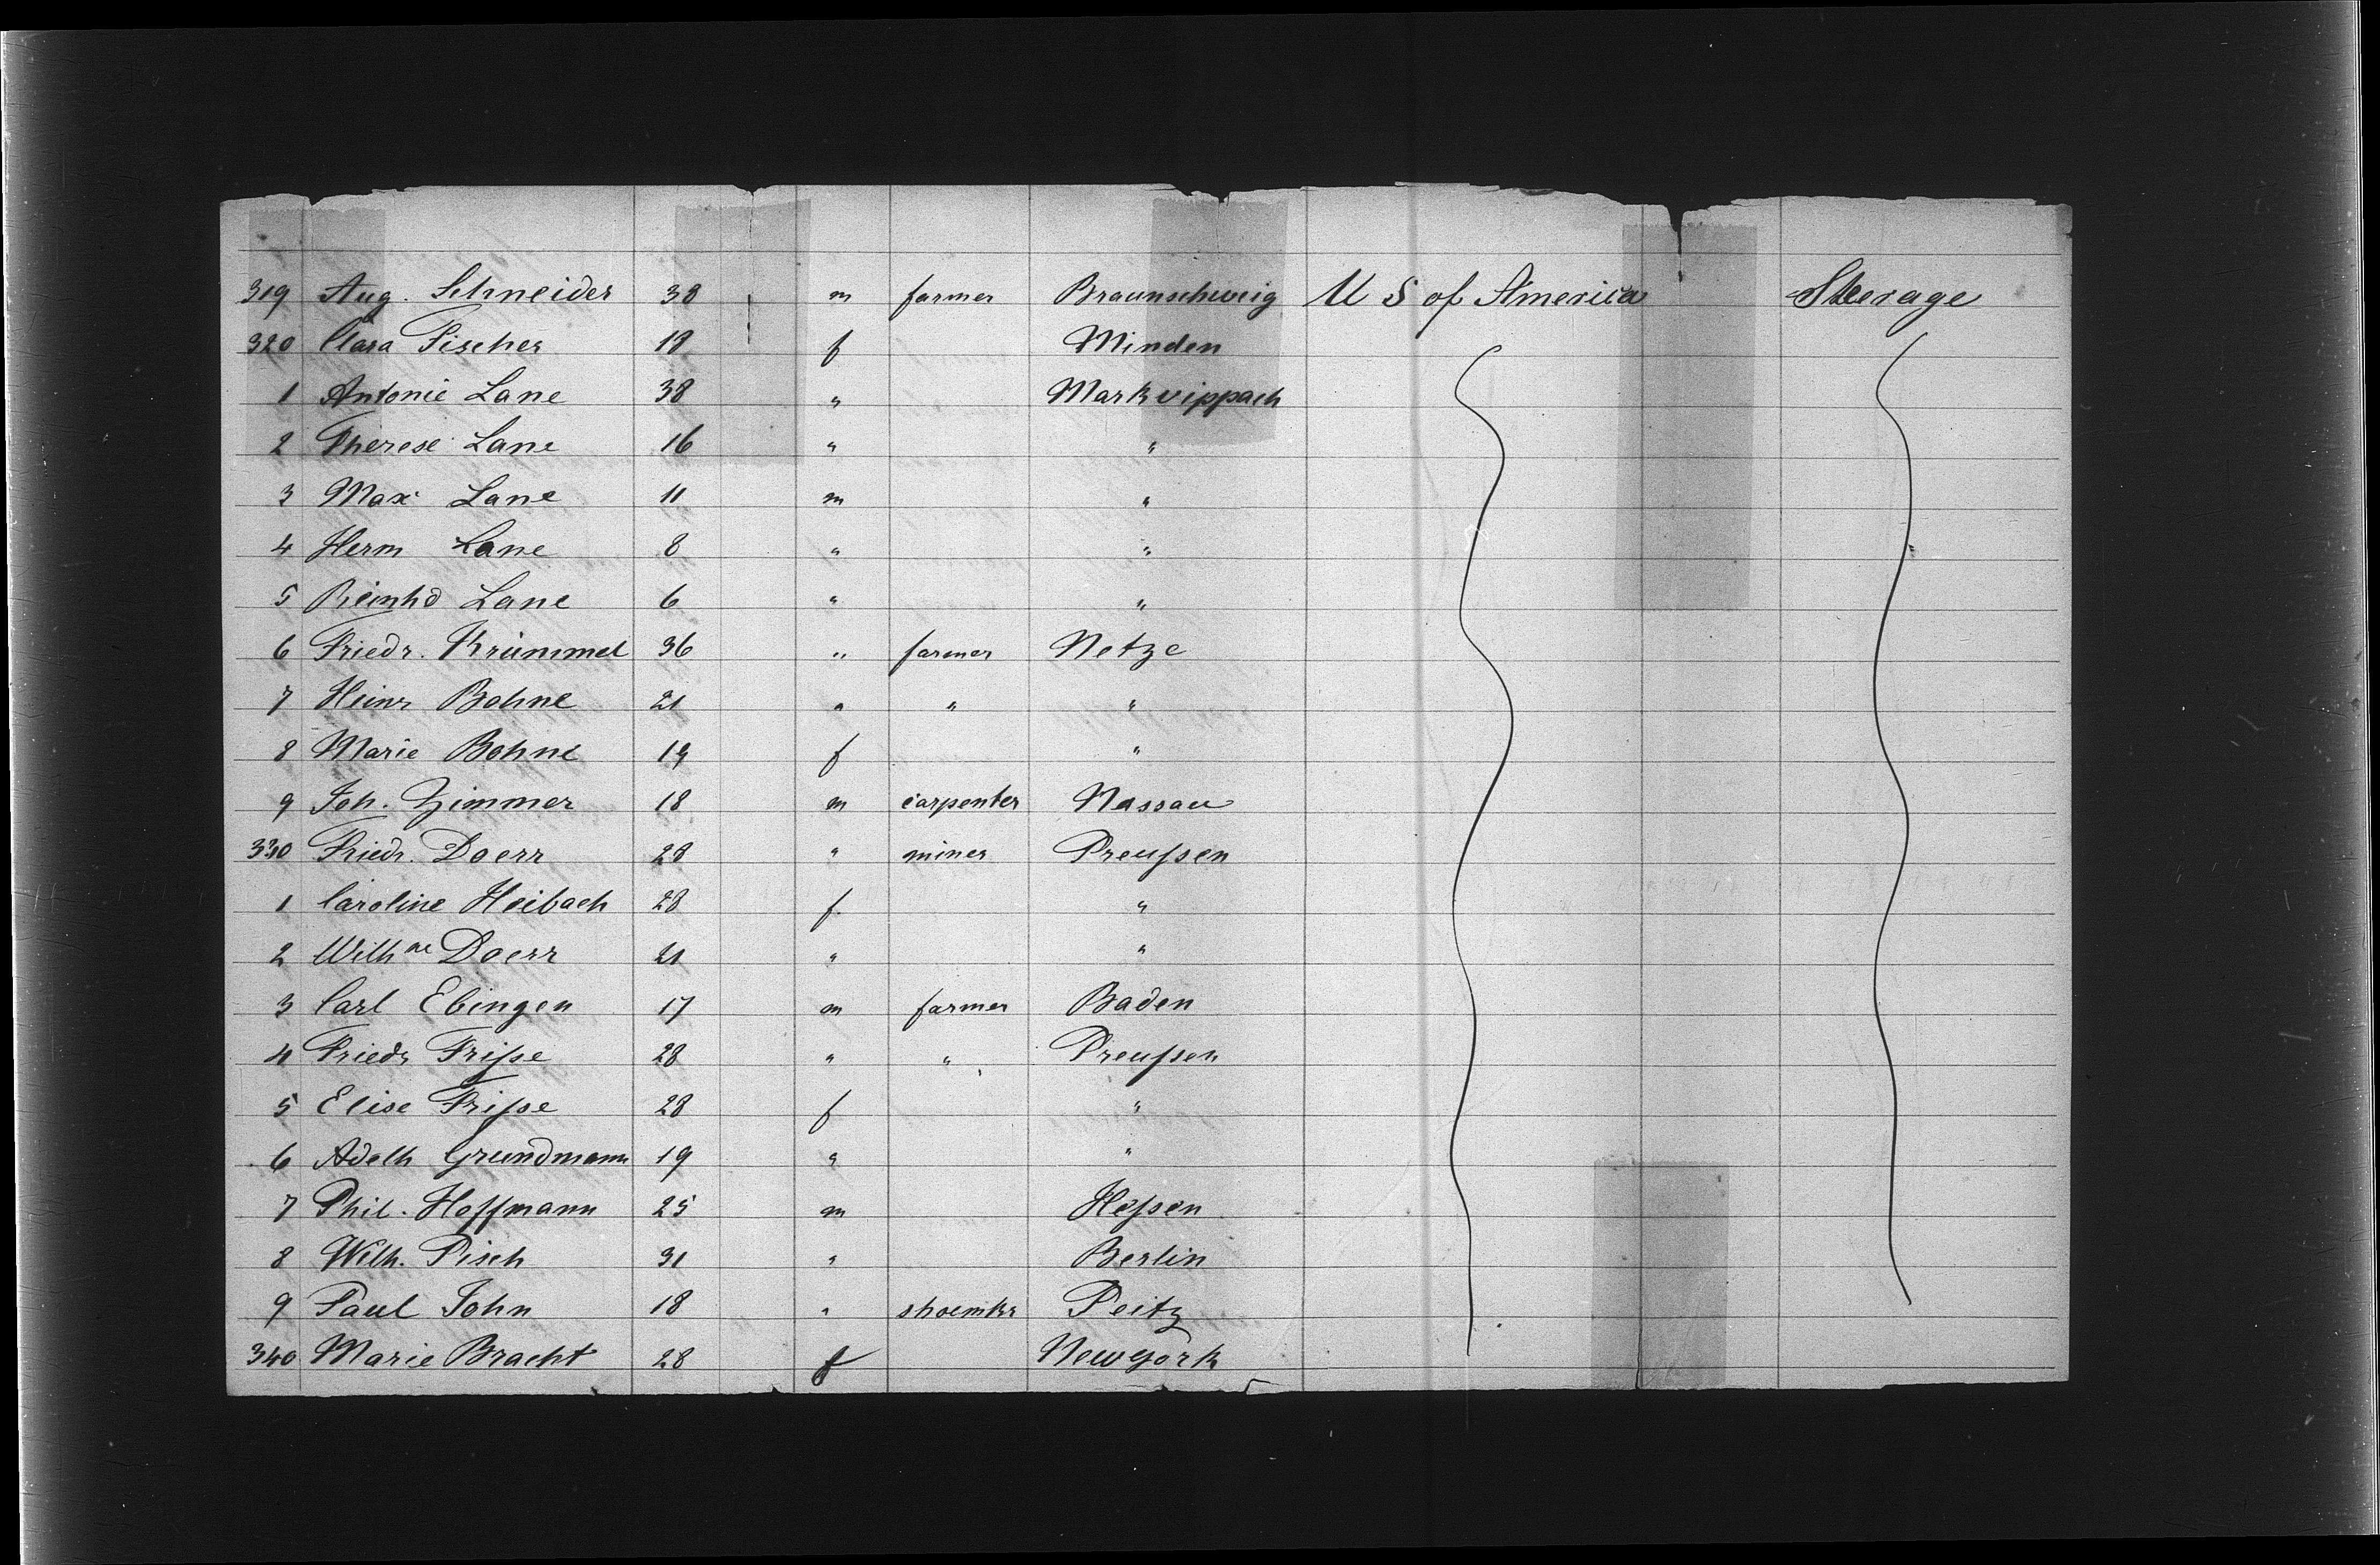 319 Aug. Schneider 38 m farmer Braunschweig U S of America Steerage
320 Clara Fischer 19 f Minden
1 Antonie Lane 38 " Markvippach
2 Therese Lane 16 " "
3 Max Lane 11 m "
4 Herm Lane 8 " "
5 Reinhd Lane 6 " "
6 Friedr. Krümmel 36 " farmer Netze
7 Heinr Bohne 21 " " "
8 Marie Bohne 19 f "
9 Joh. Zimmer 18 m carpenter Nassau
330 Friedr. Doerr 28 " miner Preußen
1 Caroline Heibach 28 f "
2 Wilhne Doerr 21 " "
3 Carl Ebingen 17 m farmer Baden
4 Friedr Friße 28 " " Preußen
5 Elise Friße 28 f "
6 Adelh Grundmann 19 " "
7 Phil. Hoffmann 25 m Heßen
8 Wilh. Pisch 31 " Berlin
9 Paul John 18 " shoemkr Peitz
340 Marie Bracht 28 f Newyork